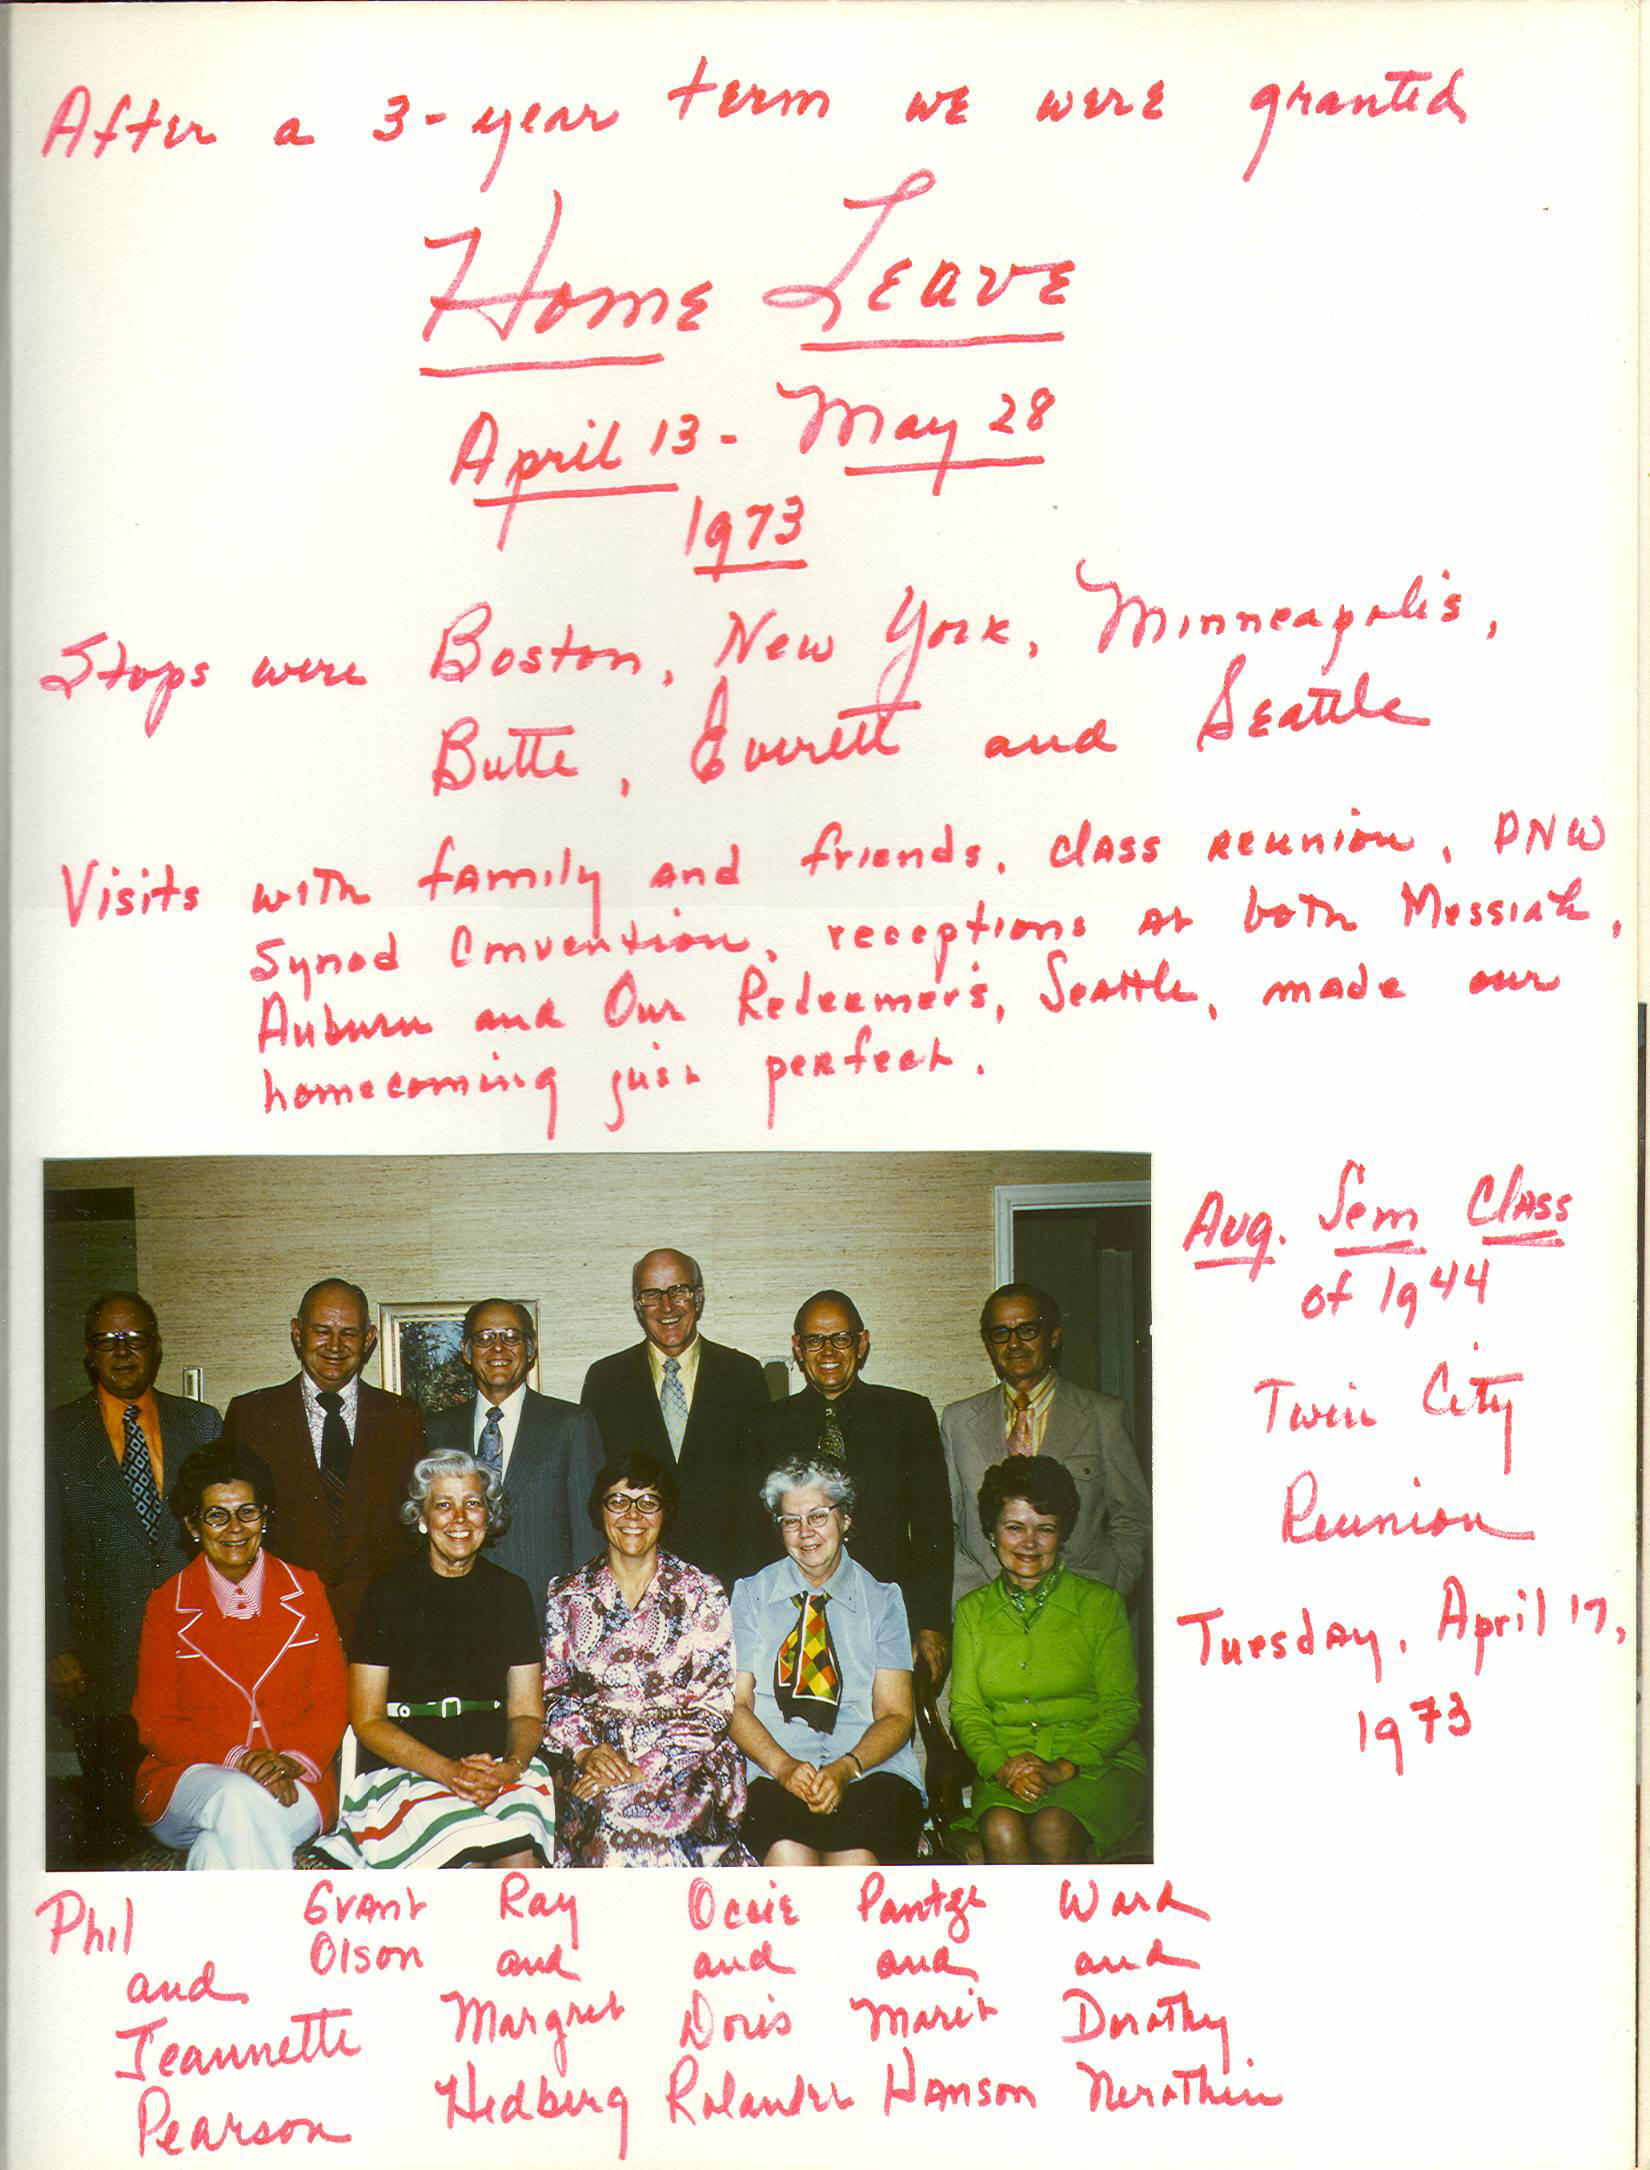 After a 3-year term we were granted
Home Leave
April 13 - May 28
1973
Stops were Boston, New York, Minneapolis,
Butte, Everett and Seattle
Visits with family and friends, class reunion, PNW
Synod Convention, receptions at both Messiah,
Auburn and Our Redeemer's, Seattle, made our
homecoming just perfect.
Aug. Sem Class
of 1944
Twin City
Reunion
Tuesday, April 17,
1973
Phil
and
Jeannette
Pearson
Grant
Olson
Ray
and
Margret
Hedberg
and
Doris
Rolander
and
Marit
Hanson
Ward
and
Dorothy